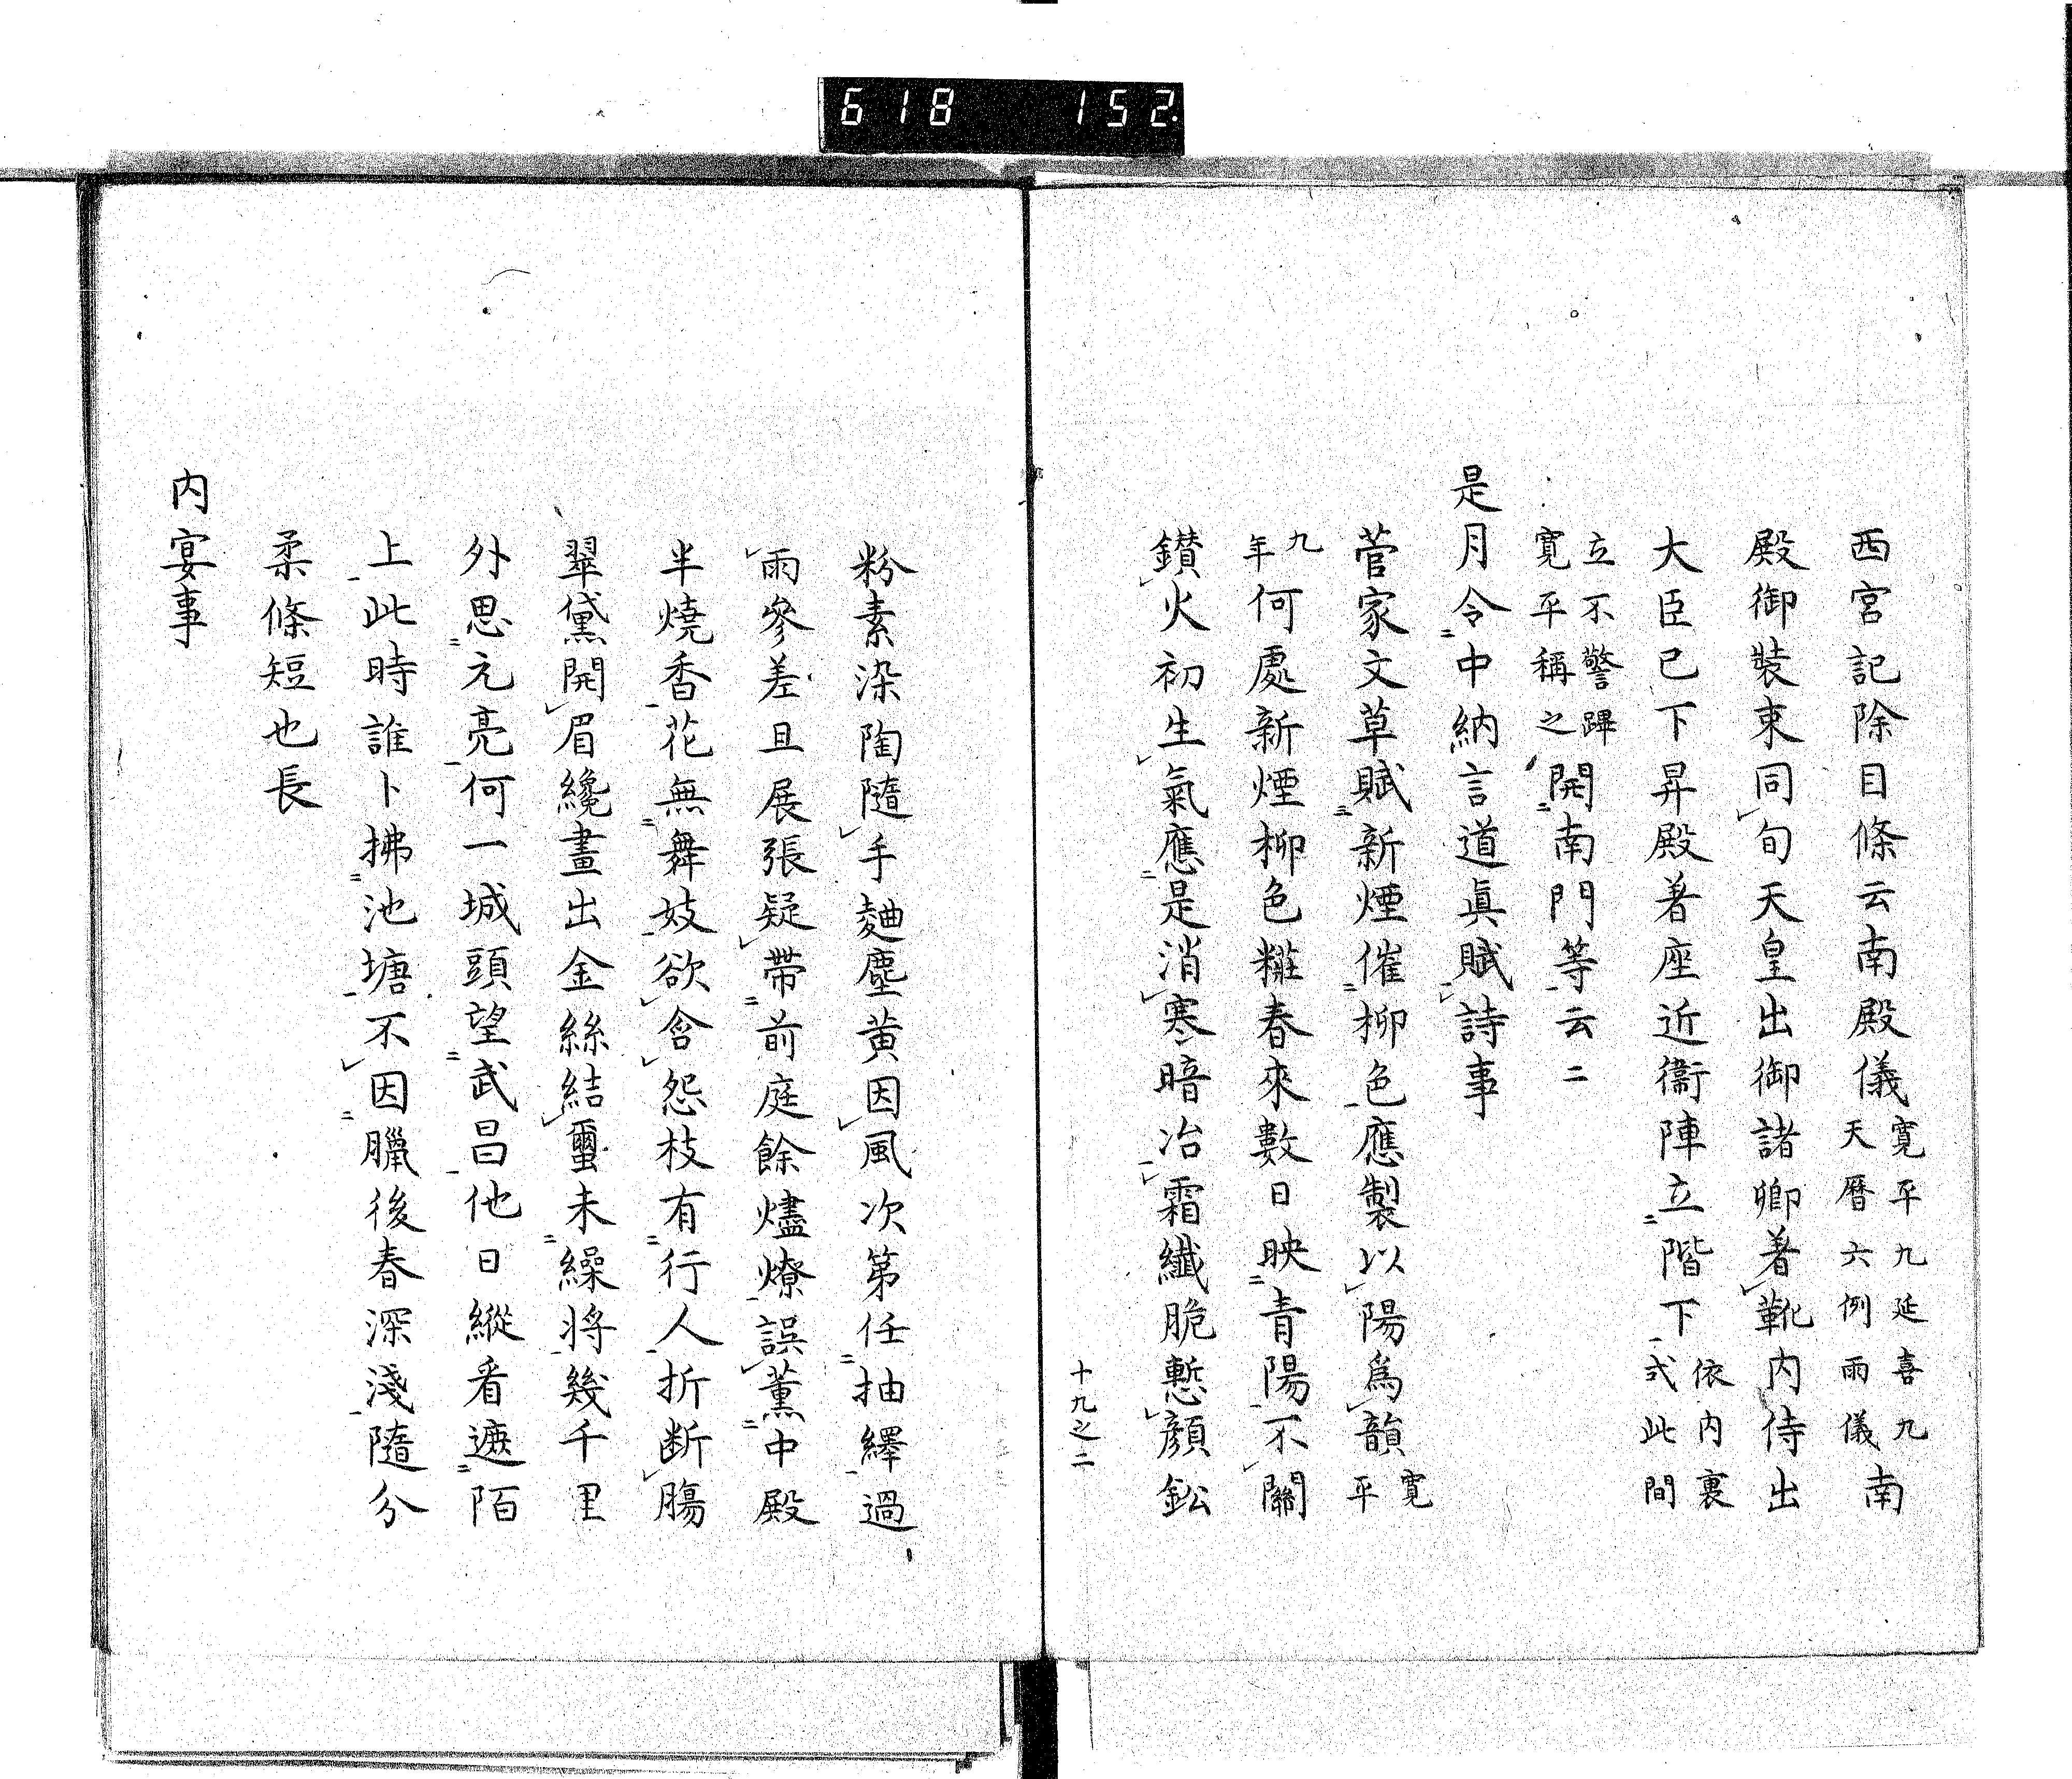 618 152
西宮記除目條云南殿儀寛平九延喜九天暦六例雨儀南
殿御裝束同旬天皇出御諸卿著靴内侍出
大臣已下昇殿著座近衞陣立階下依内裏式此間
立不警蹕寛平稱之開南門等云二
是月令中納言道眞賦詩事
菅家文草賦新煙催柳色應製以陽爲韻寛平
九年何處新煙柳色糚春來數日映青陽不關
鑚火初生氣應是消寒暗冶霜纖脆慙顔鈆
十九之二
粉素染陶隨手麹塵黄因風次第任抽繹過
雨參差且展張疑帶前庭餘燼燎誤薫中殿
半燒香花無舞妓欲含怨枝有行人折断膓
翠黛開眉纔畫出金絲結璽未繰將幾千里
外思元亮何一城頭望武昌他日縱看遮陌
上此時誰卜拂池塘不因臘後春深淺隨分
柔條短也長
内宴事